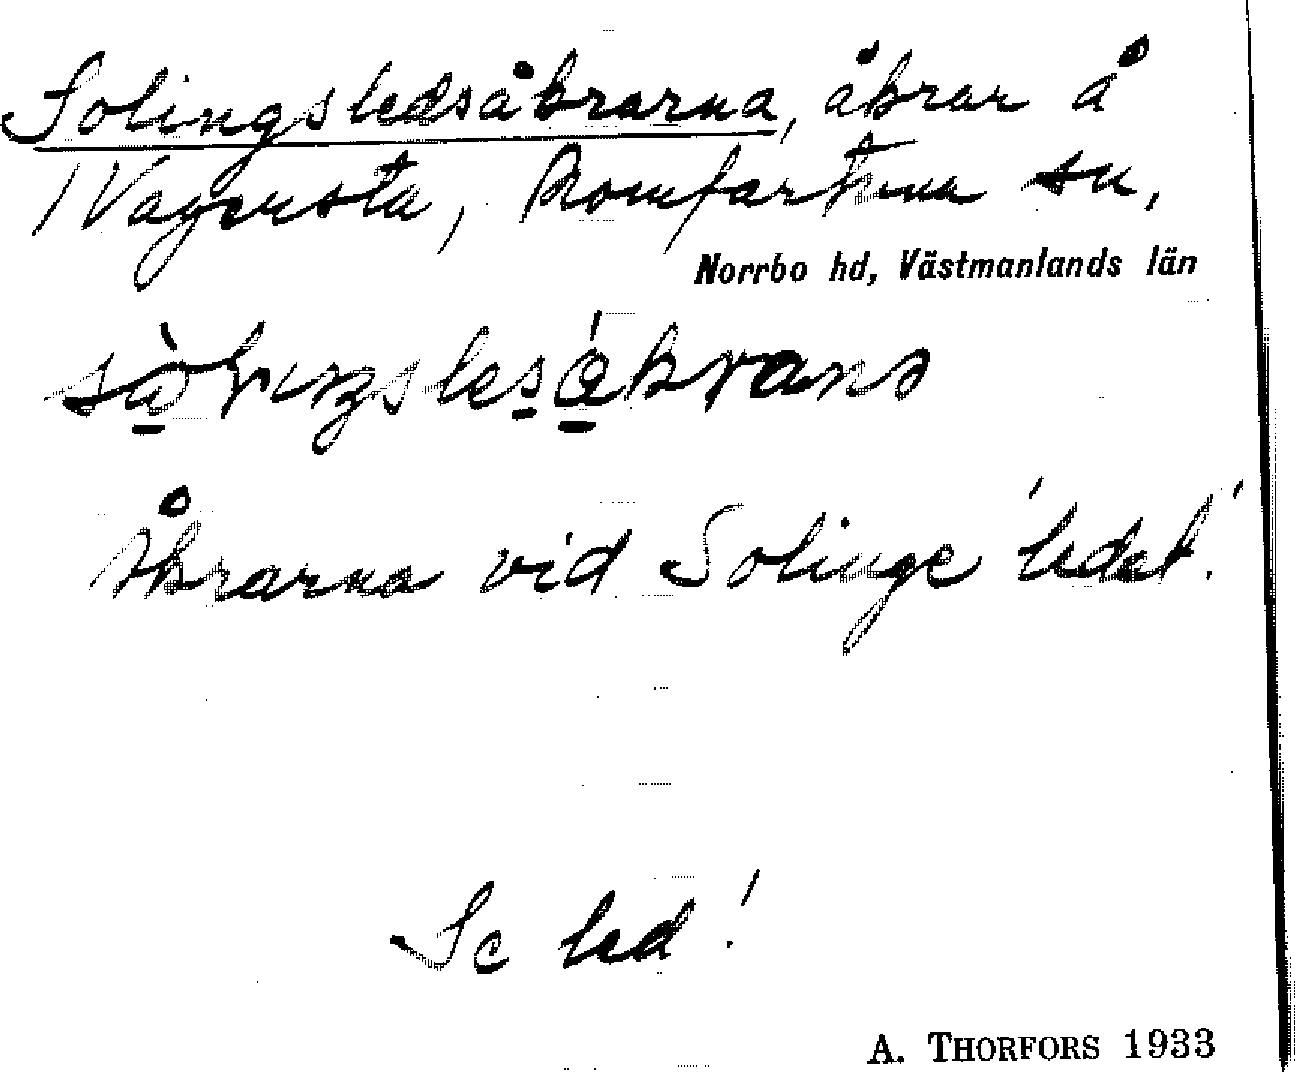 Solingsledsåkrarna, åkrar å
Vagersta, Romfartuna sn,
Norrbo hd, Västmanlands län
Åkrarna vid Solinge 'ledet'.
Se led!
A. THORFORS 1933